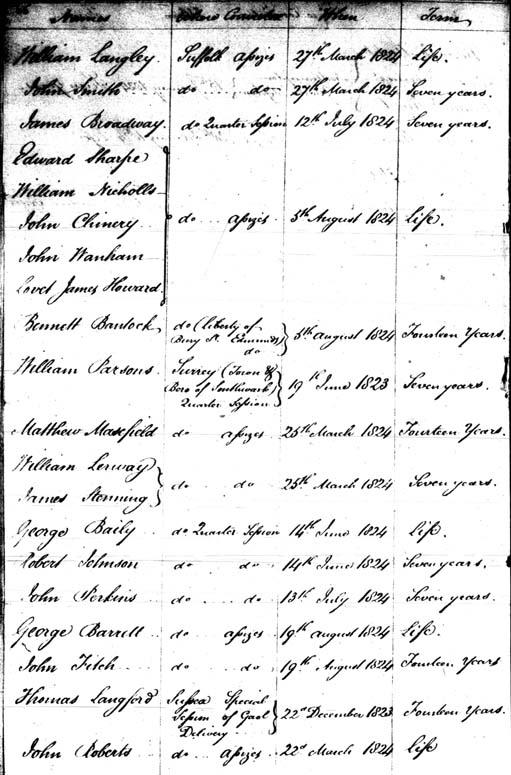 Names Where Convicted When Term
William Langley. Suffolk Assizes 27th March 1824 Life.
John Smith do do 27th March 1824 Seven years.
James Broadway. do Quarter Session 12th July 1824 Seven years.
Edward Sharpe
William Nicholls
John Chinery do Assizes 5th August 1824 Life.
John Wanham
Lovet James Howard
Bennett Bantock do (Liberty of
Bury St. Edmunds) do 5th August 1824 Fourteen Years.
William Parsons Surrey (Town &
Boro of Southwark) 19th June 1823 Seven years.
Quarter Session
Matthew Masefield do Assizes 25th March 1824 Fourteen Years.
William Lerway
do do 25th March 1824 Seven years.
James Stenning
George Baily do Quarter Session 14th June 1824 Life.
Robert Johnson do do 14th June 1824 Seven years.
John Perkins do do 13th July 1824 Seven years.
George Barrett do Assizes 19th August 1824 Life.
John Fitch do do 19th August 1824 Fourteen Years
Thomas Langford Sussex Special
Session of Gaol 22d December 1823 Fourteen Years.
Delivery
John Roberts do Assizes 22d March 1824 Life